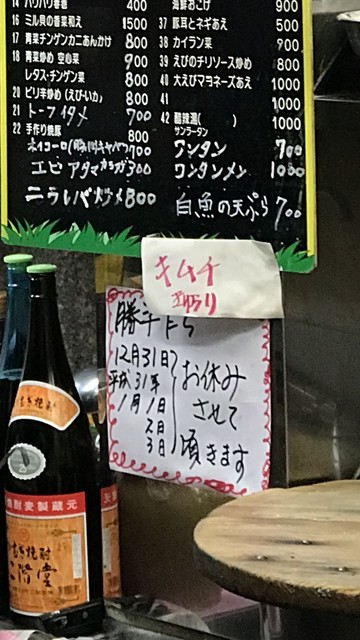 14 パリパリ春巻 400
16 ミル貝の香菜和え 1500
17 青菜チンゲンカニあんかけ 800
18 青菜炒め 空心菜 900
レタス・チンゲン菜 800
20 ピリ辛炒め（えびいか） 800
21 トーフイタメ 700
22 手作り焼豚 800
700
エビ 300
ニラレバ炒メ 800
海鮮おこげ 900
37 豚耳とネギあえ 500
38 カイラン菜 900
39 えびのチリソース炒め 800
40 大えびマヨネーズあえ 1000
41 1000
42 酸辣湯（　　） 1000
サンラータン
ワンタン 700
ワンタンメン 1000
白魚の天ぷら 700
キムチ
勝手ながら
12月31日
平成31年
1月1日
2日
3日
お休み
させて
頂きます
むぎ焼酎
焼酎麦製蔵元
むぎ焼酎
二階堂